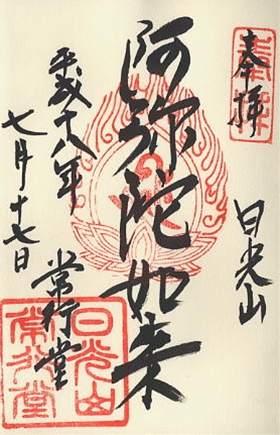 奉拝
日光山
阿弥陀如来
常行堂
平成十八年
七月十七日
奉拝
日光山
常行堂